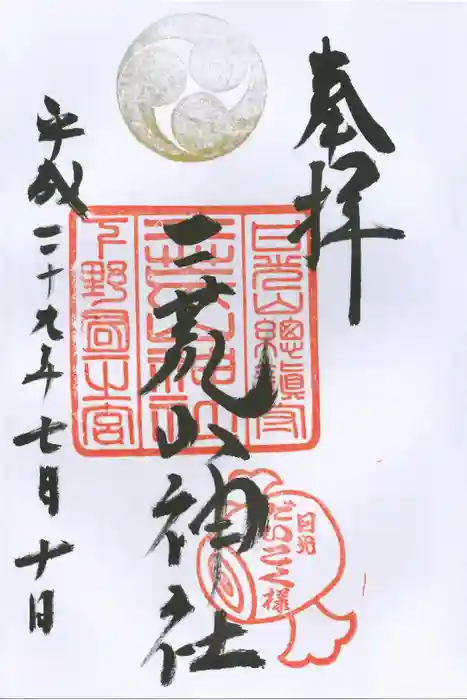 奉拝
日光山總鎭守
二荒山神社
二荒山神社
下野國一之宮
日光
だいこく様
平成二十九年七月十日